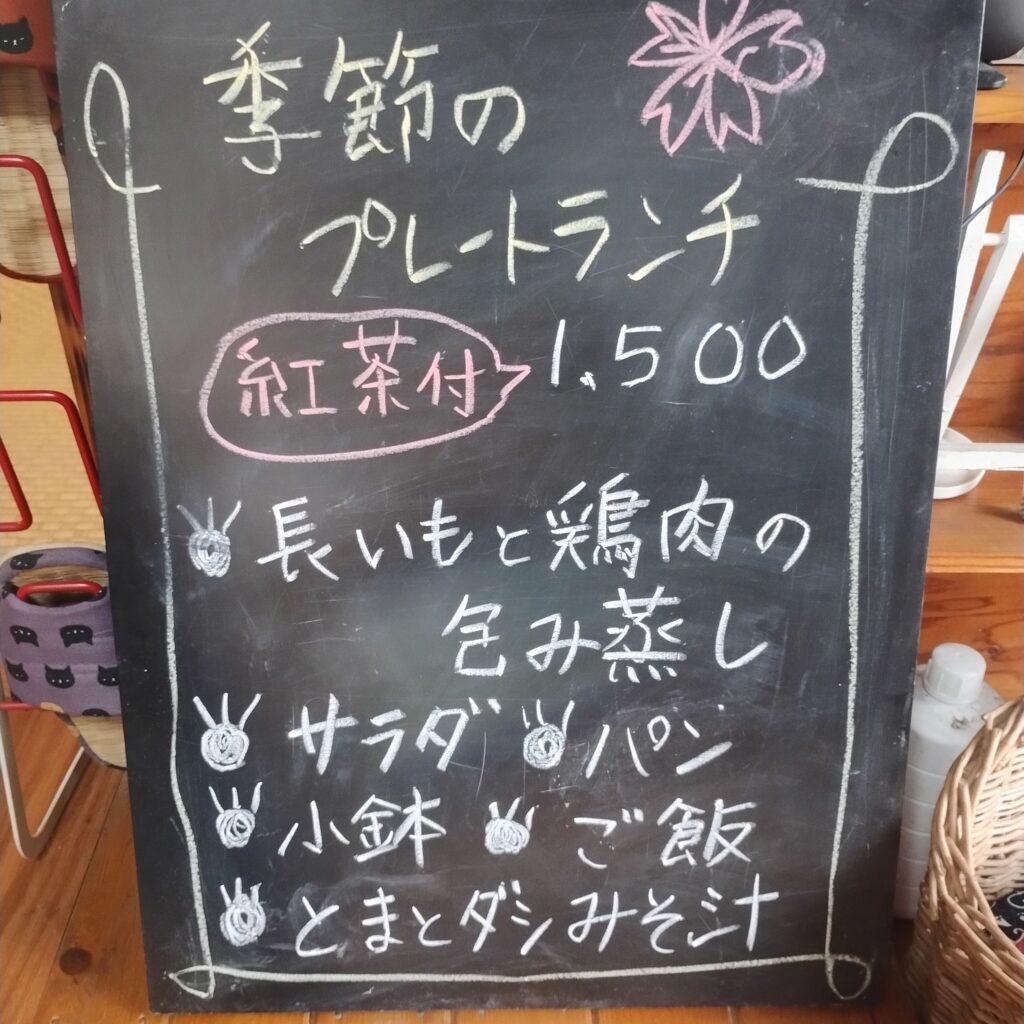 季節の
プレートランチ
紅茶付 1.500
長いもと鶏肉の
包み蒸し
サラダ パン
小鉢 ご飯
とまとダシみそ汁